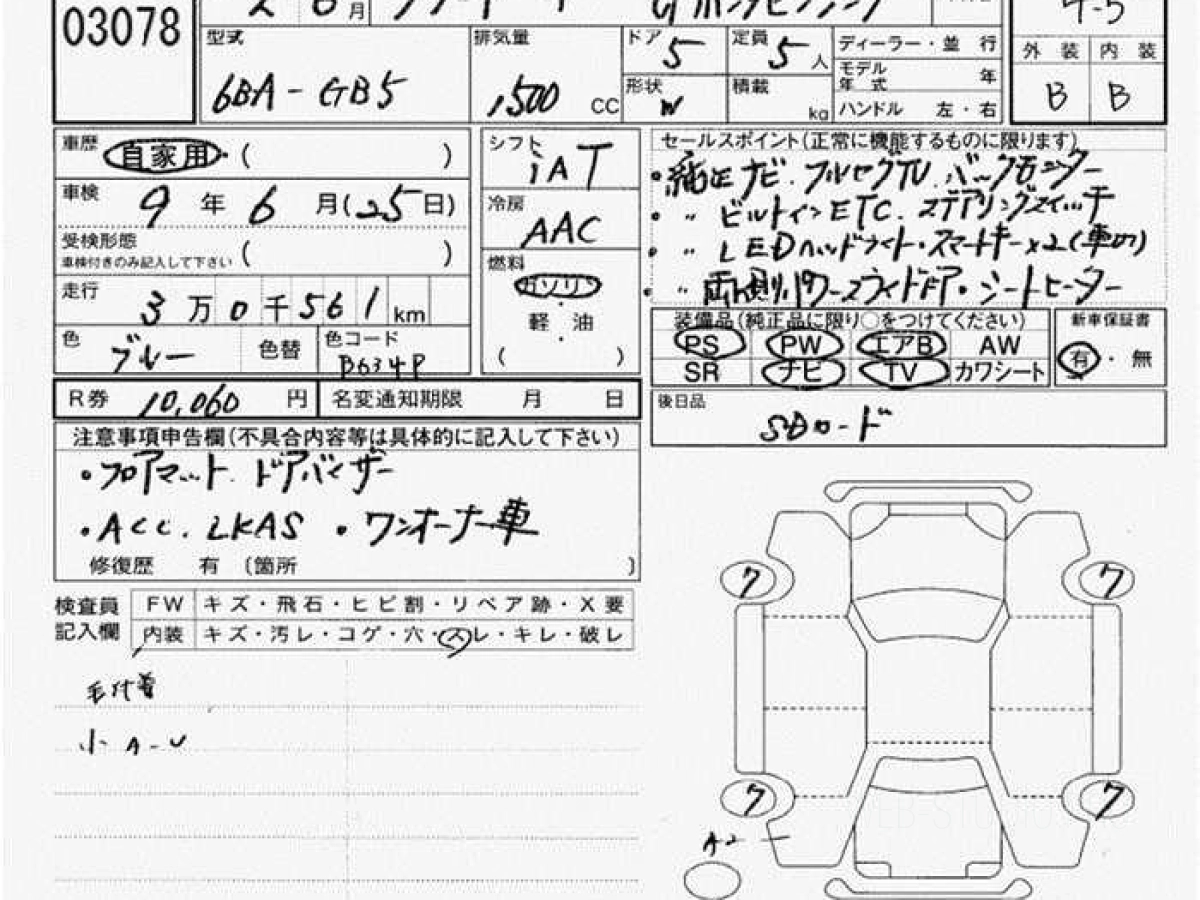 03078
2 6 月
4.5
型式 排気量 ドア 5 定員 5 人 ディーラー・並 行
6BA-GB5 1,500 CC 形状 W 積載 kg モデル年式 年
ハンドル 左・右
外 装 内 装
B B
車歴 自家用 ( )
車検 9 年 6 月(25日)
受検形態
車検付きのみ記入して下さい ( )
走行 3 万 0 千 561 km
色 ブルー 色替 色コード B634P
シフト iAT
冷房 AAC
燃料 ガソリン
・
軽 油
・
( )
セールスポイント(正常に機能するものに限ります)
・純正ナビ.フルセグTV.バックモニター
・〃 ビルトインETC.ステアリングスイッチ
・〃 LEDヘッドライト・スマートキー×2(車の)
・〃 両側パワースライドドア・シートヒーター
装備品(純正品に限り○をつけてください) 新車保証書
PS PW エアB AW 有・無
SR ナビ TV カワシート
R券 10,060 円 名変通知期限 月 日
後日品
SDカード
注意事項申告欄(不具合内容等は具体的に記入して下さい)
・フロアマット.ドアバイザー
・ACC.LKAS ・ワンオーナー車
修復歴 有 〔箇所 〕
検査員記入欄
FW キズ・飛石・ヒビ割・リペア跡・X 要
内装 キズ・汚レ・コゲ・穴・スレ・キレ・破レ
小 A-U
ワ ワ
ワ ワ
A2